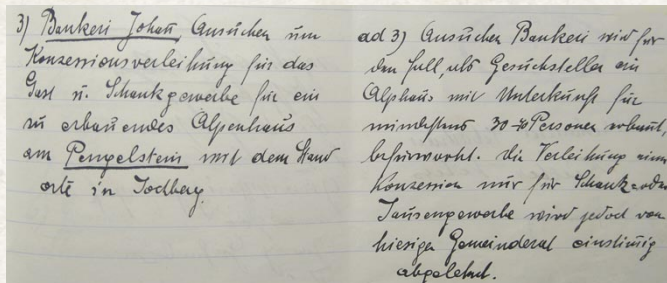 3) Bankeri Johann, Ansuchen um
Konzessionsverleihung für das
Gast u. Schankgewerbe für ein
zu erbauendes Alpenhaus
am Pengelstein mit dem Stand
orte in Jochberg.
ad 3) Ansuchen Bankeri wird für
den Fall, als Gesuchsteller ein
Alphaus mit Unterkunft für
mindestens 30-40 Personen erbaut,
befürwortet. Die Verleihung einer
Konzession nur für Schank-oder
Jausengewerbe wird jedoch von
hiesigen Gemeinderat einstimmig
abgelehnt.